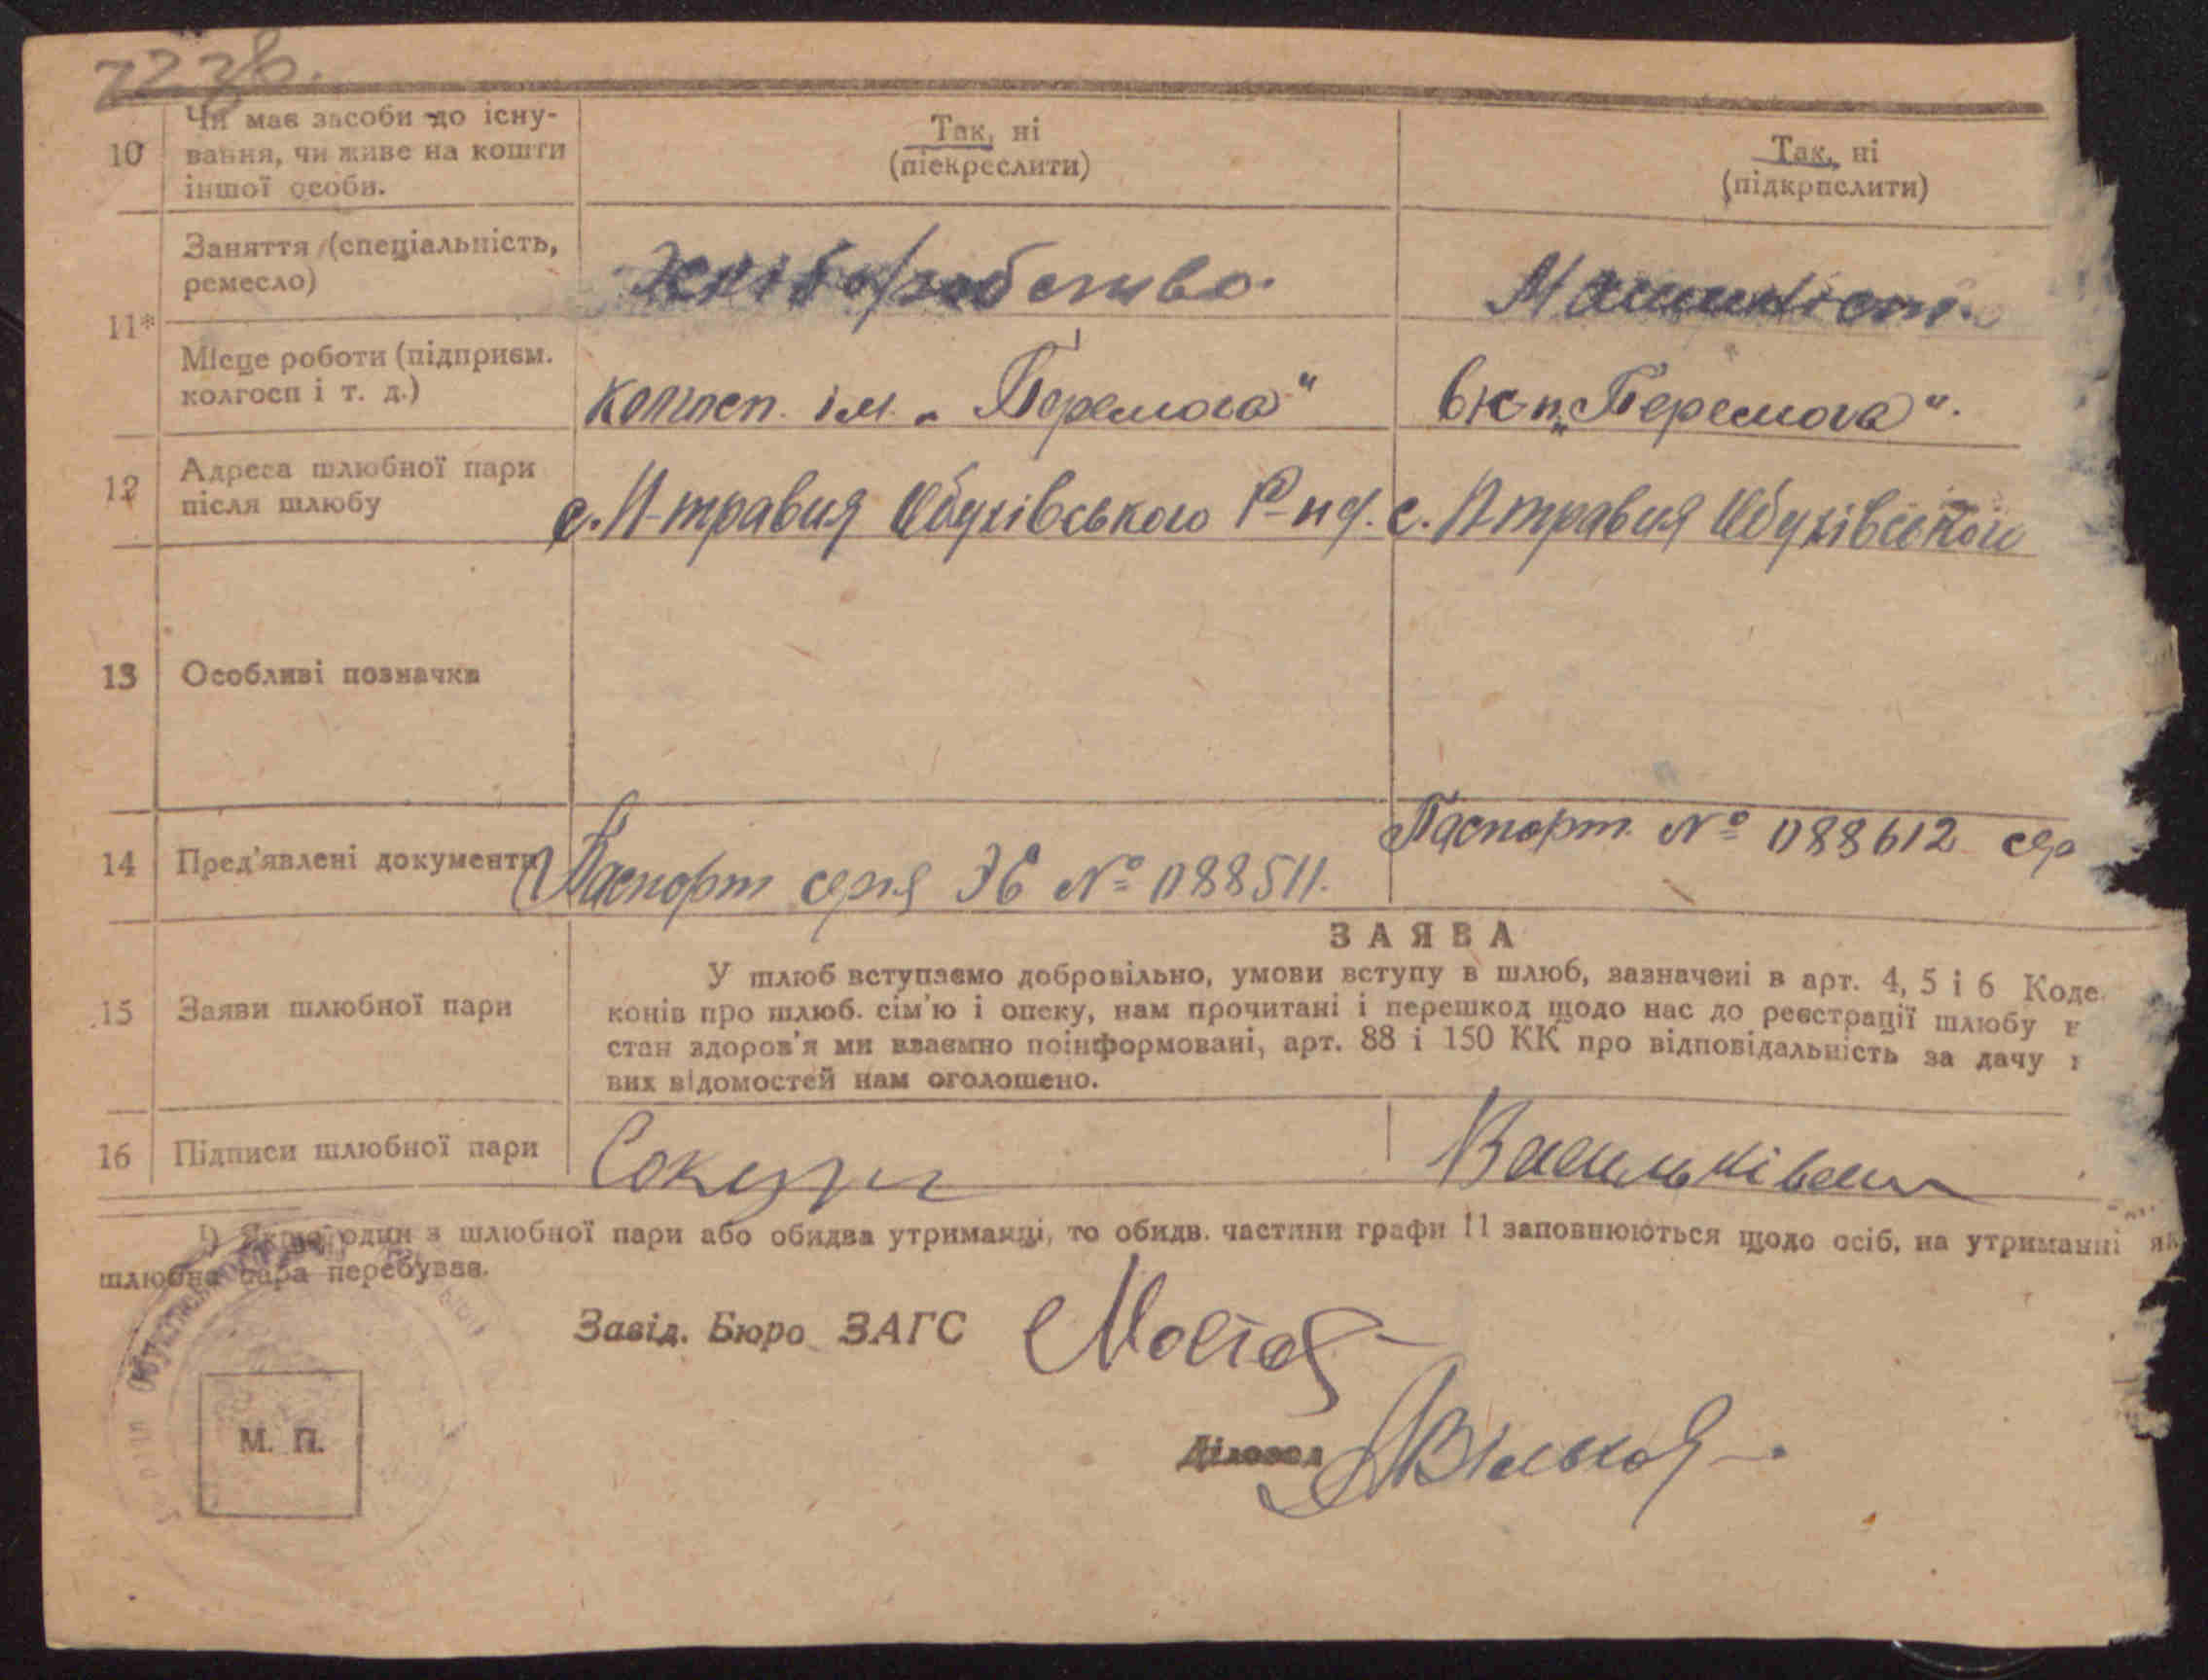 10 Чи має засоби до існу-
вання, чи живе на кошти
іншої особи.
Так, ні
(піекреслити)
Так, ні
(підкрпслити)
11* Заняття (спеціальність,
ремесло)
хліборобство.
Машиніст.
Місце роботи (підприєм.
колгосп і т. д.)
колгосп. ім. „Перемога"
в к-п. „Перемога".
12 Адреса шлюбної пари
після шлюбу
с. П-травня Обухівського р-нд.
с. П травня Обухівського
13 Особливі позначки
14 Пред'явлені документи
Паспорт серія ЭБ № 088511.
Паспорт № 088612 сер
ЗАЯВА
15 Заяви шлюбної пари
У шлюб вступаємо добровільно, умови вступу в шлюб, зазначені в арт. 4, 5 і 6 Коде
конів про шлюб. сім'ю і опеку, нам прочитані і перешкод щодо нас до реєстрації шлюбу н
стан здоров'я ми взаємно поінформовані, арт. 88 і 150 КК про відповідальність за дачу
вих відомостей нам оголошено.
16 Підписи шлюбної пари
1) Якщо один з шлюбної пари або обидва утриманці, то обидв. частини графи 11 заповнюються щодо осіб, на утриманні як
шлюбна пара перебуває.
Завід. Бюро ЗАГС
Діловод
М. П.